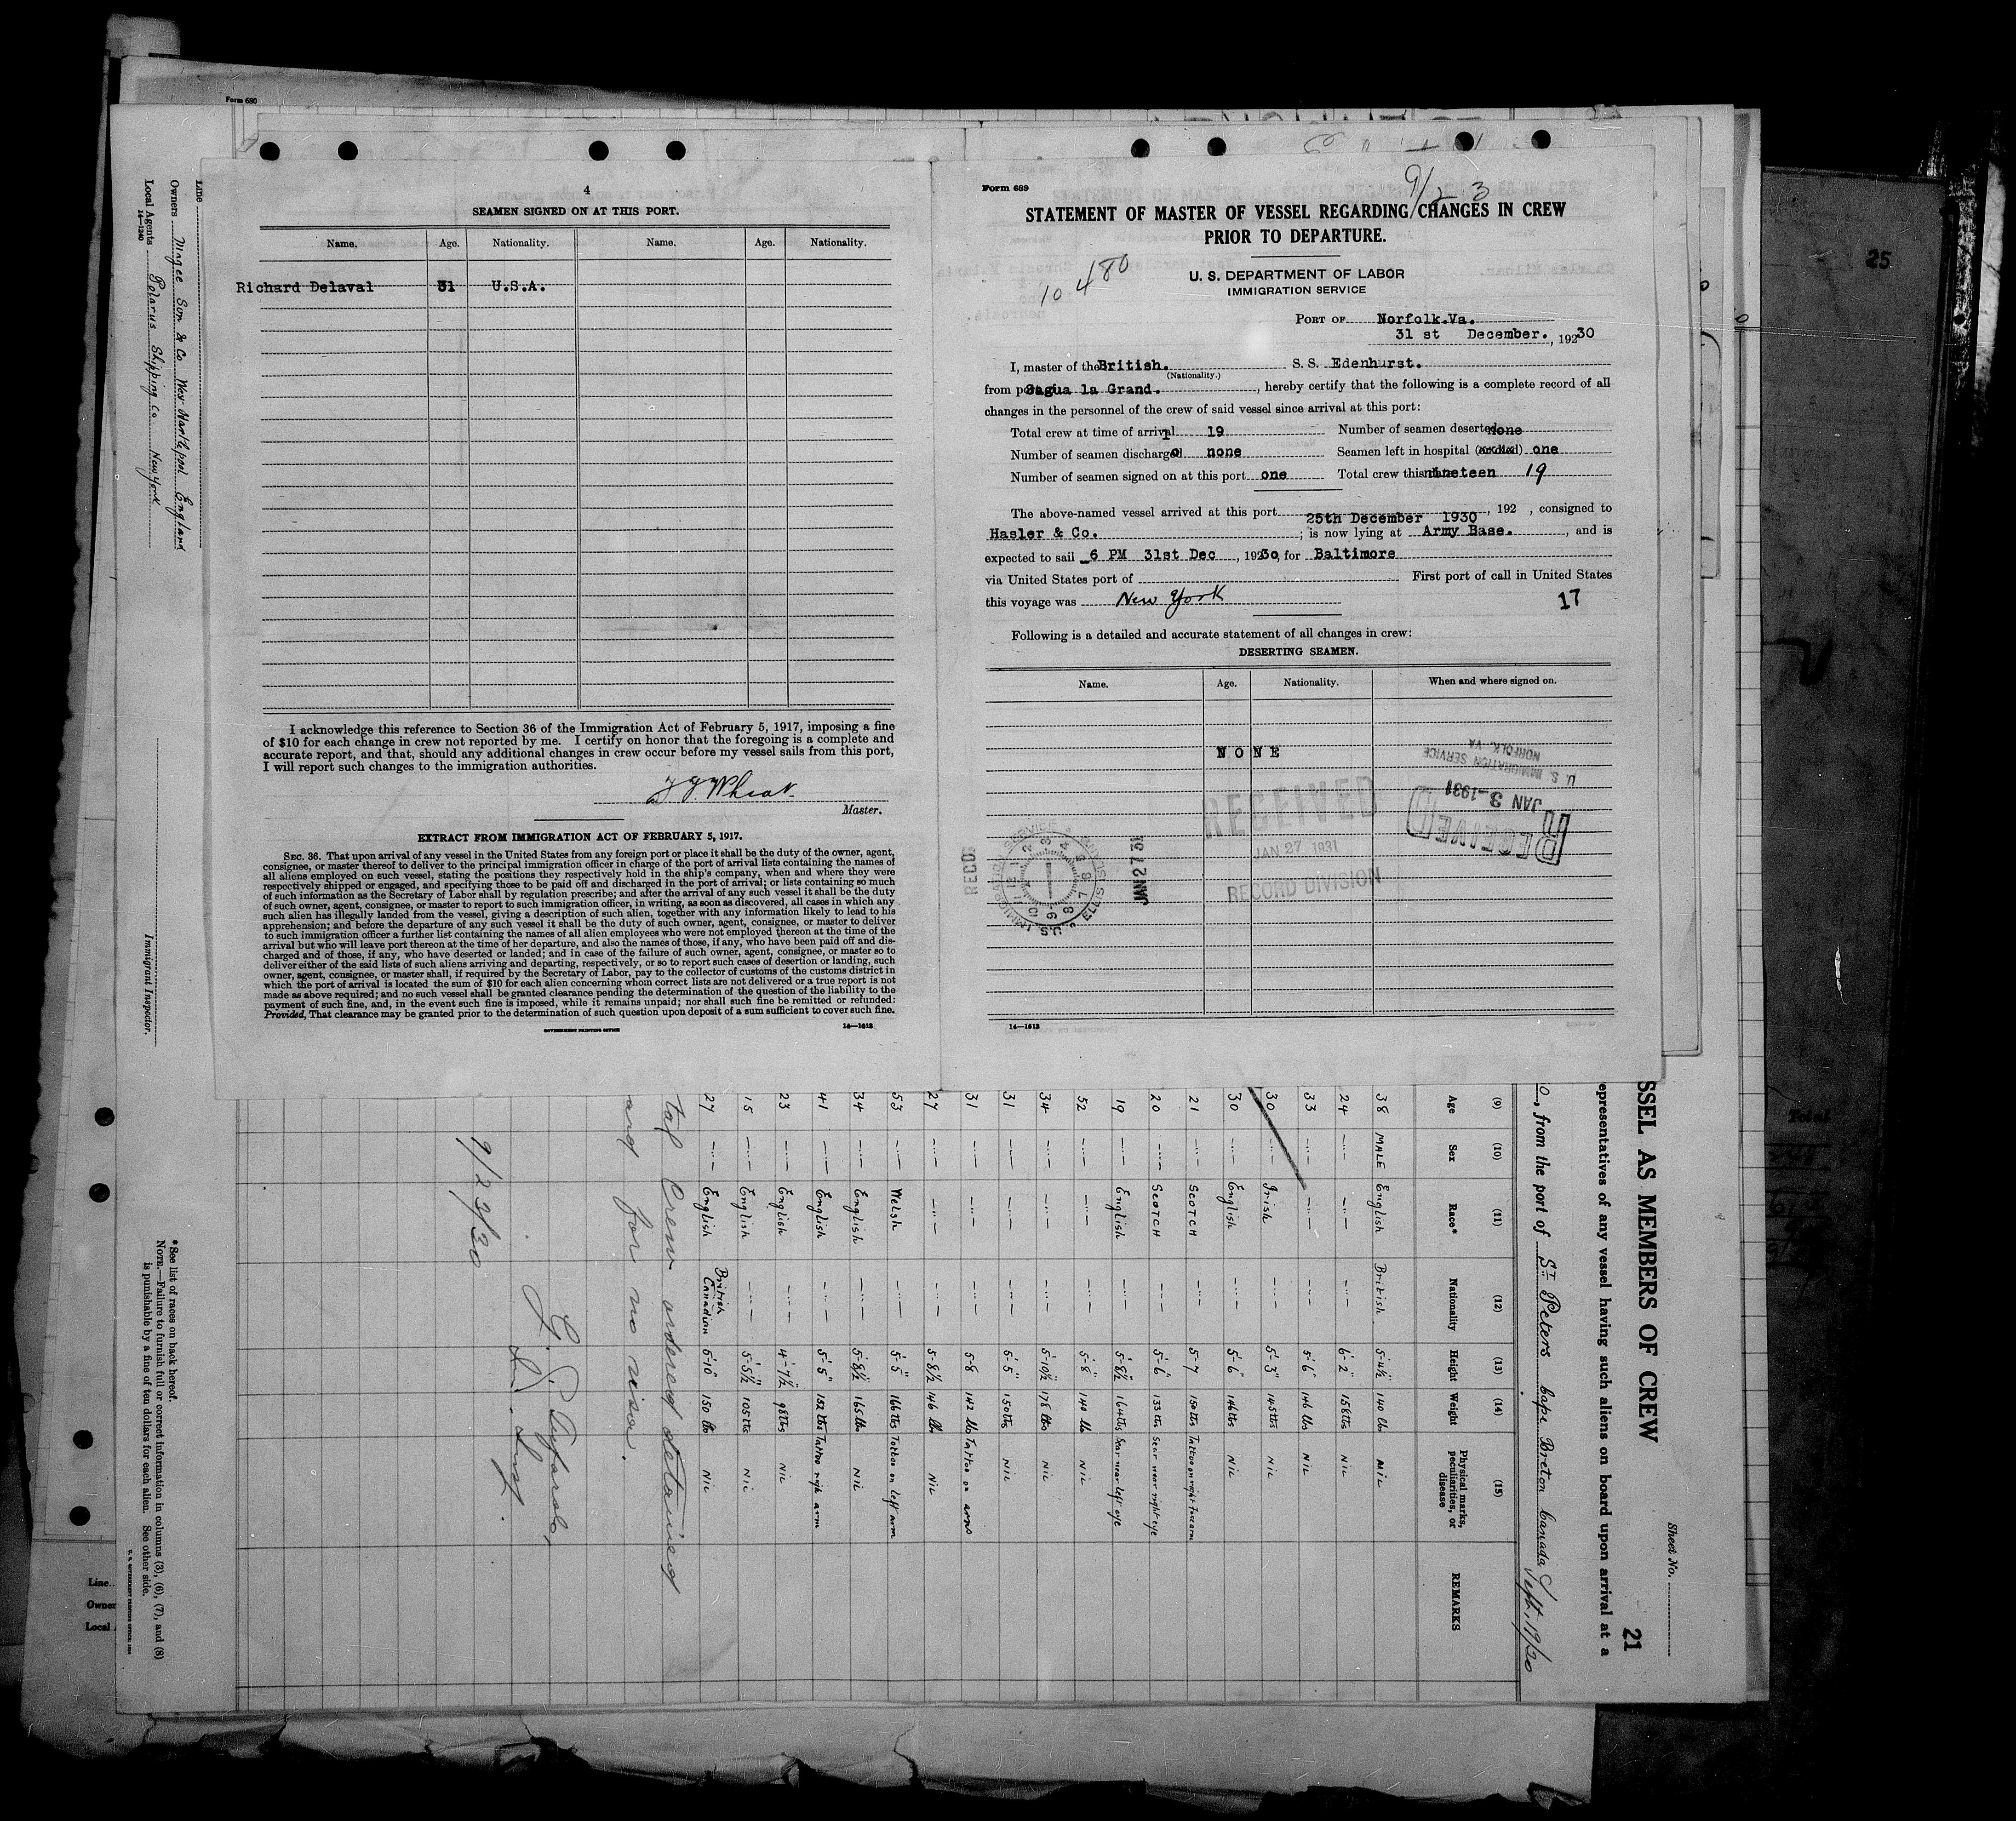 Form 680
4
SEAMEN SIGNED ON AT THIS PORT.
Name. Age. Nationality. Name. Age. Nationality.
Richard Delaval 31 U.S.A.
I acknowledge this reference to Section 36 of the Immigration Act of February 5, 1917, imposing a fine
of $10 for each change in crew not reported by me. I certify on honor that the foregoing is a complete and
accurate report, and that, should any additional changes in crew occur before my vessel sails from this port,
I will report such changes to the immigration authorities.
Master.
EXTRACT FROM IMMIGRATION ACT OF FEBRUARY 5, 1917.
SEC. 36. That upon arrival of any vessel in the United States from any foreign port or place it shall be the duty of the owner, agent,
consignee, or master thereof to deliver to the principal immigration officer in charge of the port of arrival lists containing the names of
all aliens employed on such vessel, stating the positions they respectively hold in the ship's company, when and where they were
respectively shipped or engaged, and specifying those to be paid off and discharged in the port of arrival; or lists containing so much
of such information as the Secretary of Labor shall by regulation prescribe; and after the arrival of any such vessel it shall be the duty
of such owner, agent, consignee, or master to report to such immigration officer, in writing, as soon as discovered, all cases in which any
such alien has illegally landed from the vessel, giving a description of such alien, together with any information likely to lead to his
apprehension; and before the departure of any such vessel it shall be the duty of such owner, agent, consignee, or master to deliver
to such immigration officer a further list containing the names of all alien employees who were not employed thereon at the time of the
arrival but who will leave port thereon at the time of her departure, and also the names of those, if any, who have been paid off and dis-
charged and of those, if any, who have deserted or landed; and in case of the failure of such owner, agent, consignee, or master so to
deliver either of the said lists of such aliens arriving and departing, respectively, or so to report such cases of desertion or landing, such
owner, agent, consignee, or master shall, if required by the Secretary of Labor, pay to the collector of customs of the customs district in
which the port of arrival is located the sum of $10 for each alien concerning whom correct lists are not delivered or a true report is not
made as above required; and no such vessel shall be granted clearance pending the determination of the question of the liability to the
payment of such fine, and, in the event such fine is imposed, while it remains unpaid; nor shall such fine be remitted or refunded:
Provided, That clearance may be granted prior to the determination of such question upon deposit of a sum sufficient to cover such fine.
GOVERNMENT PRINTING OFFICE 14—1613
Form 689
9/23
STATEMENT OF MASTER OF VESSEL REGARDING CHANGES IN CREW
PRIOR TO DEPARTURE.
10480
U. S. DEPARTMENT OF LABOR
IMMIGRATION SERVICE
PORT OF Norfolk.Va.
31 st December. , 19230
I, master of the British. S. S. Edenhurst.
(Nationality.)
from port Sagua la Grand. , hereby certify that the following is a complete record of all
changes in the personnel of the crew of said vessel since arrival at this port:
Total crew at time of arrival 19 Number of seamen deserted none
Number of seamen discharged none Seamen left in hospital (or died) one
Number of seamen signed on at this port one Total crew this nineteen 19
The above-named vessel arrived at this port 25th December 1930 , 192 , consigned to
Hasler & Co. ; is now lying at Army Base. , and is
expected to sail 6 PM 31st Dec , 19230, for Baltimore
via United States port of First port of call in United States
this voyage was New York
17
Following is a detailed and accurate statement of all changes in crew:
DESERTING SEAMEN.
Name. Age. Nationality. When and where signed on.
NONE
RECEIVED
JAN 27 1931
RECORD DIVISION
U. S. IMMIGRATION SERVICE
NORFOLK, VA
JAN 3 1931
RECEIVED
RECD
U.S. IMMIGRATION SERVICE ELLIS ISLAND
JAN 27 31
14—1613
25
Total
Line
Owners Magee Son & Co West Hartlepool England
Local Agents Polarus Shipping Co. New York
14—1240
Immigrant Inspector.
Sheet No.
21
SSEL AS MEMBERS OF CREW
epresentatives of any vessel having such aliens on board upon arrival at a
, from the port of St Peters Cape Breton Canada Sept. 19/30
(9) (10) (11) (12) (13) (14) (15)
Age Sex Race* Nationality Height Weight Physical marks, peculiarities, or disease REMARKS
38 MALE English British 5-4½ 140 lbs NIL
24 —"— —"— —"— 6-2 158 lbs NIL
33 —"— —"— —"— 5-6 146 lbs NIL
30 —"— Irish —"— 5-3 145 lbs NIL
30 —"— English —"— 5-6 146 lbs NIL
21 —"— SCOTCH —"— 5-7 150 lbs Tattoo on right forearm
20 —"— SCOTCH —"— 5-6 133 lbs Scar near right eye
19 —"— English —"— 5-8½ 164 lbs Scar near left eye
52 —"— —"— —"— 5-8 140 lb NIL
34 —"— —"— —"— 5-10½ 178 lbs NIL
31 —"— —"— —"— 5-5 150 lbs NIL
31 —"— —"— —"— 5-8 142 lbs Tattoo on arms
27 —"— —"— —"— 5-8½ 146 lb NIL
53 —"— Welsh —"— 5-5 166 lbs Tattoo on left arm
34 —"— English —"— 5-8½ 165 lb NIL
41 —"— English —"— 5-5 152 lbs Tattoo right arm
23 —"— English —"— 4-7½ 98 lbs NIL
15 —"— English —"— 5-5½ 105 lbs NIL
27 —"— English British Canadian 5-10 150 lb NIL
tal Crew ordered detained
and for no visa.
9/23/30
*See list of races on back hereof.
NOTE.—Failure to furnish full or correct information in columns (3), (6), (7), and (8)
is punishable by a fine of ten dollars for each alien. See other side.
Line
Owner
Local